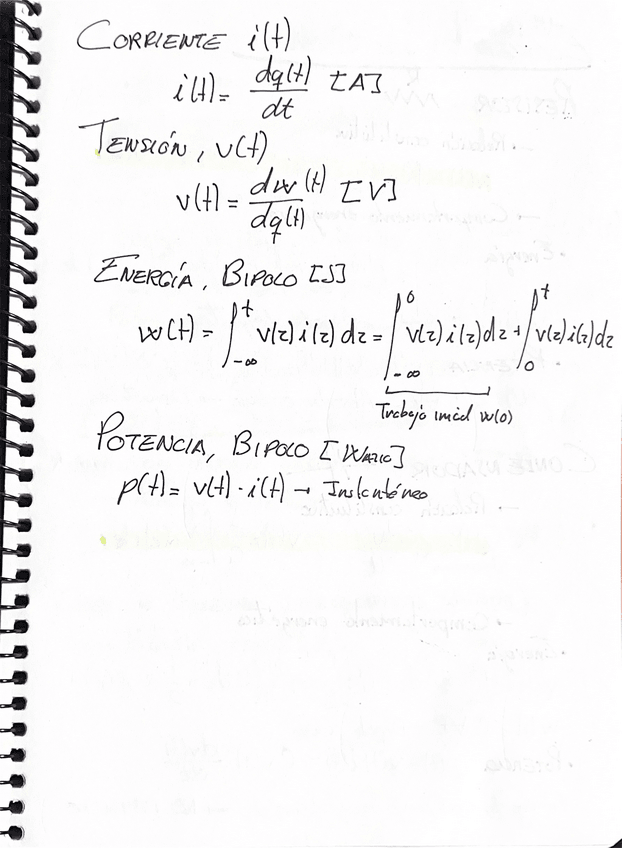 CORRIENTE i(t)
i(t) = dq(t)/dt [A]
TENSIÓN, v(t)
v(t) = dw(t)/dq(t) [V]
ENERGÍA, BIPOLO [J]
w(t) = ∫_{-∞}^{t} v(z) i(z) dz = ∫_{-∞}^{0} v(z) i(z) dz + ∫_{0}^{t} v(z) i(z) dz
Trabajo inicial w(0)
POTENCIA, BIPOLO [
p(t) = v(t) · i(t) → Instantáneo